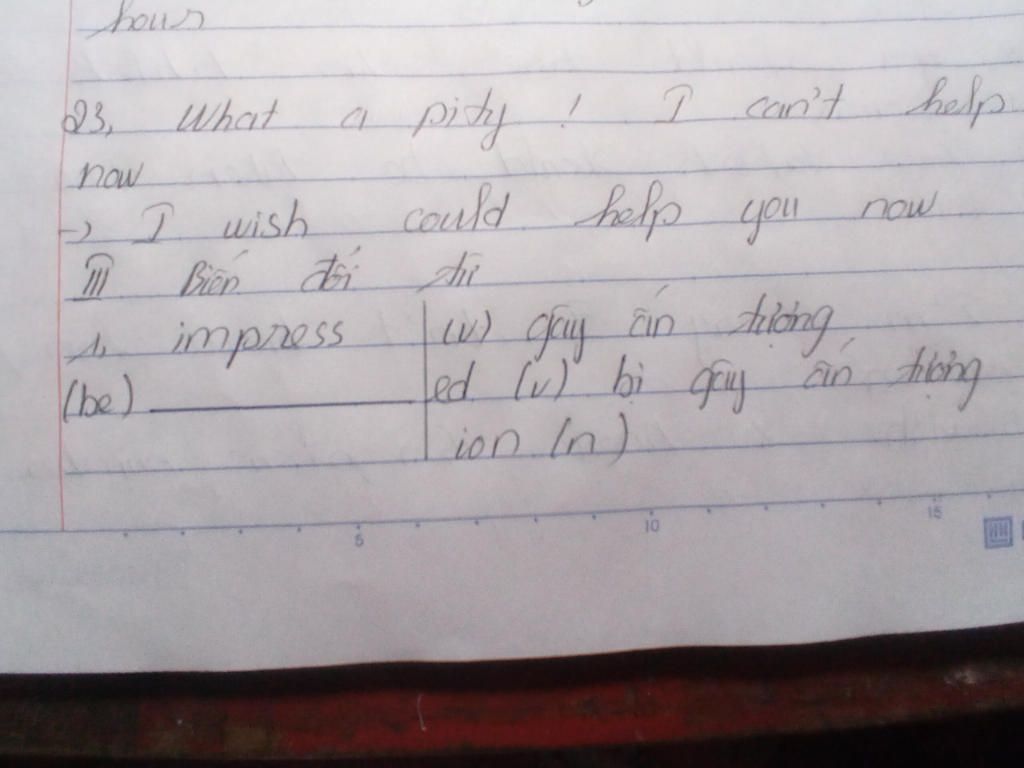 hour
23, What a pity ! I can't help
now
→ I wish could help you now
III Biến đổi từ
1, impress (v) gây ấn tượng
(be) ed (v) bị gây ấn tượng
ion (n)
5 10 15